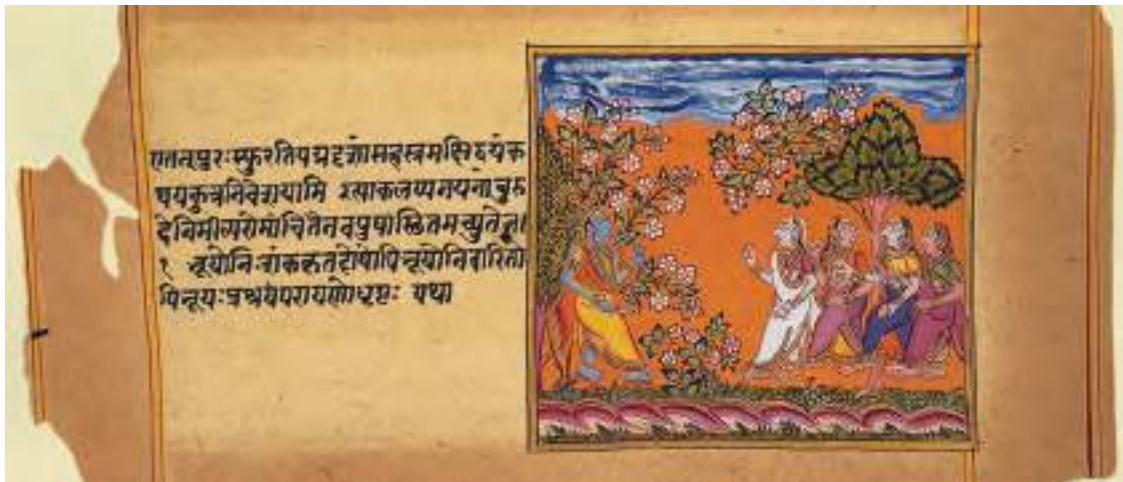 एतत्पुरःस्फुरतिपद्मदृशांसहस्रमक्षिद्वयंक
थयकुत्रनिवेशयामि इत्याकलय्यनयनांबुरु
हेनिमील्यरोमांचितेनवपुषास्थितमच्युतेन।
१ भूयोनिःशंककृतदोषोपिभूयोनिवारितो
पिभूयःप्रश्रयपरायणोधृष्टः यथा